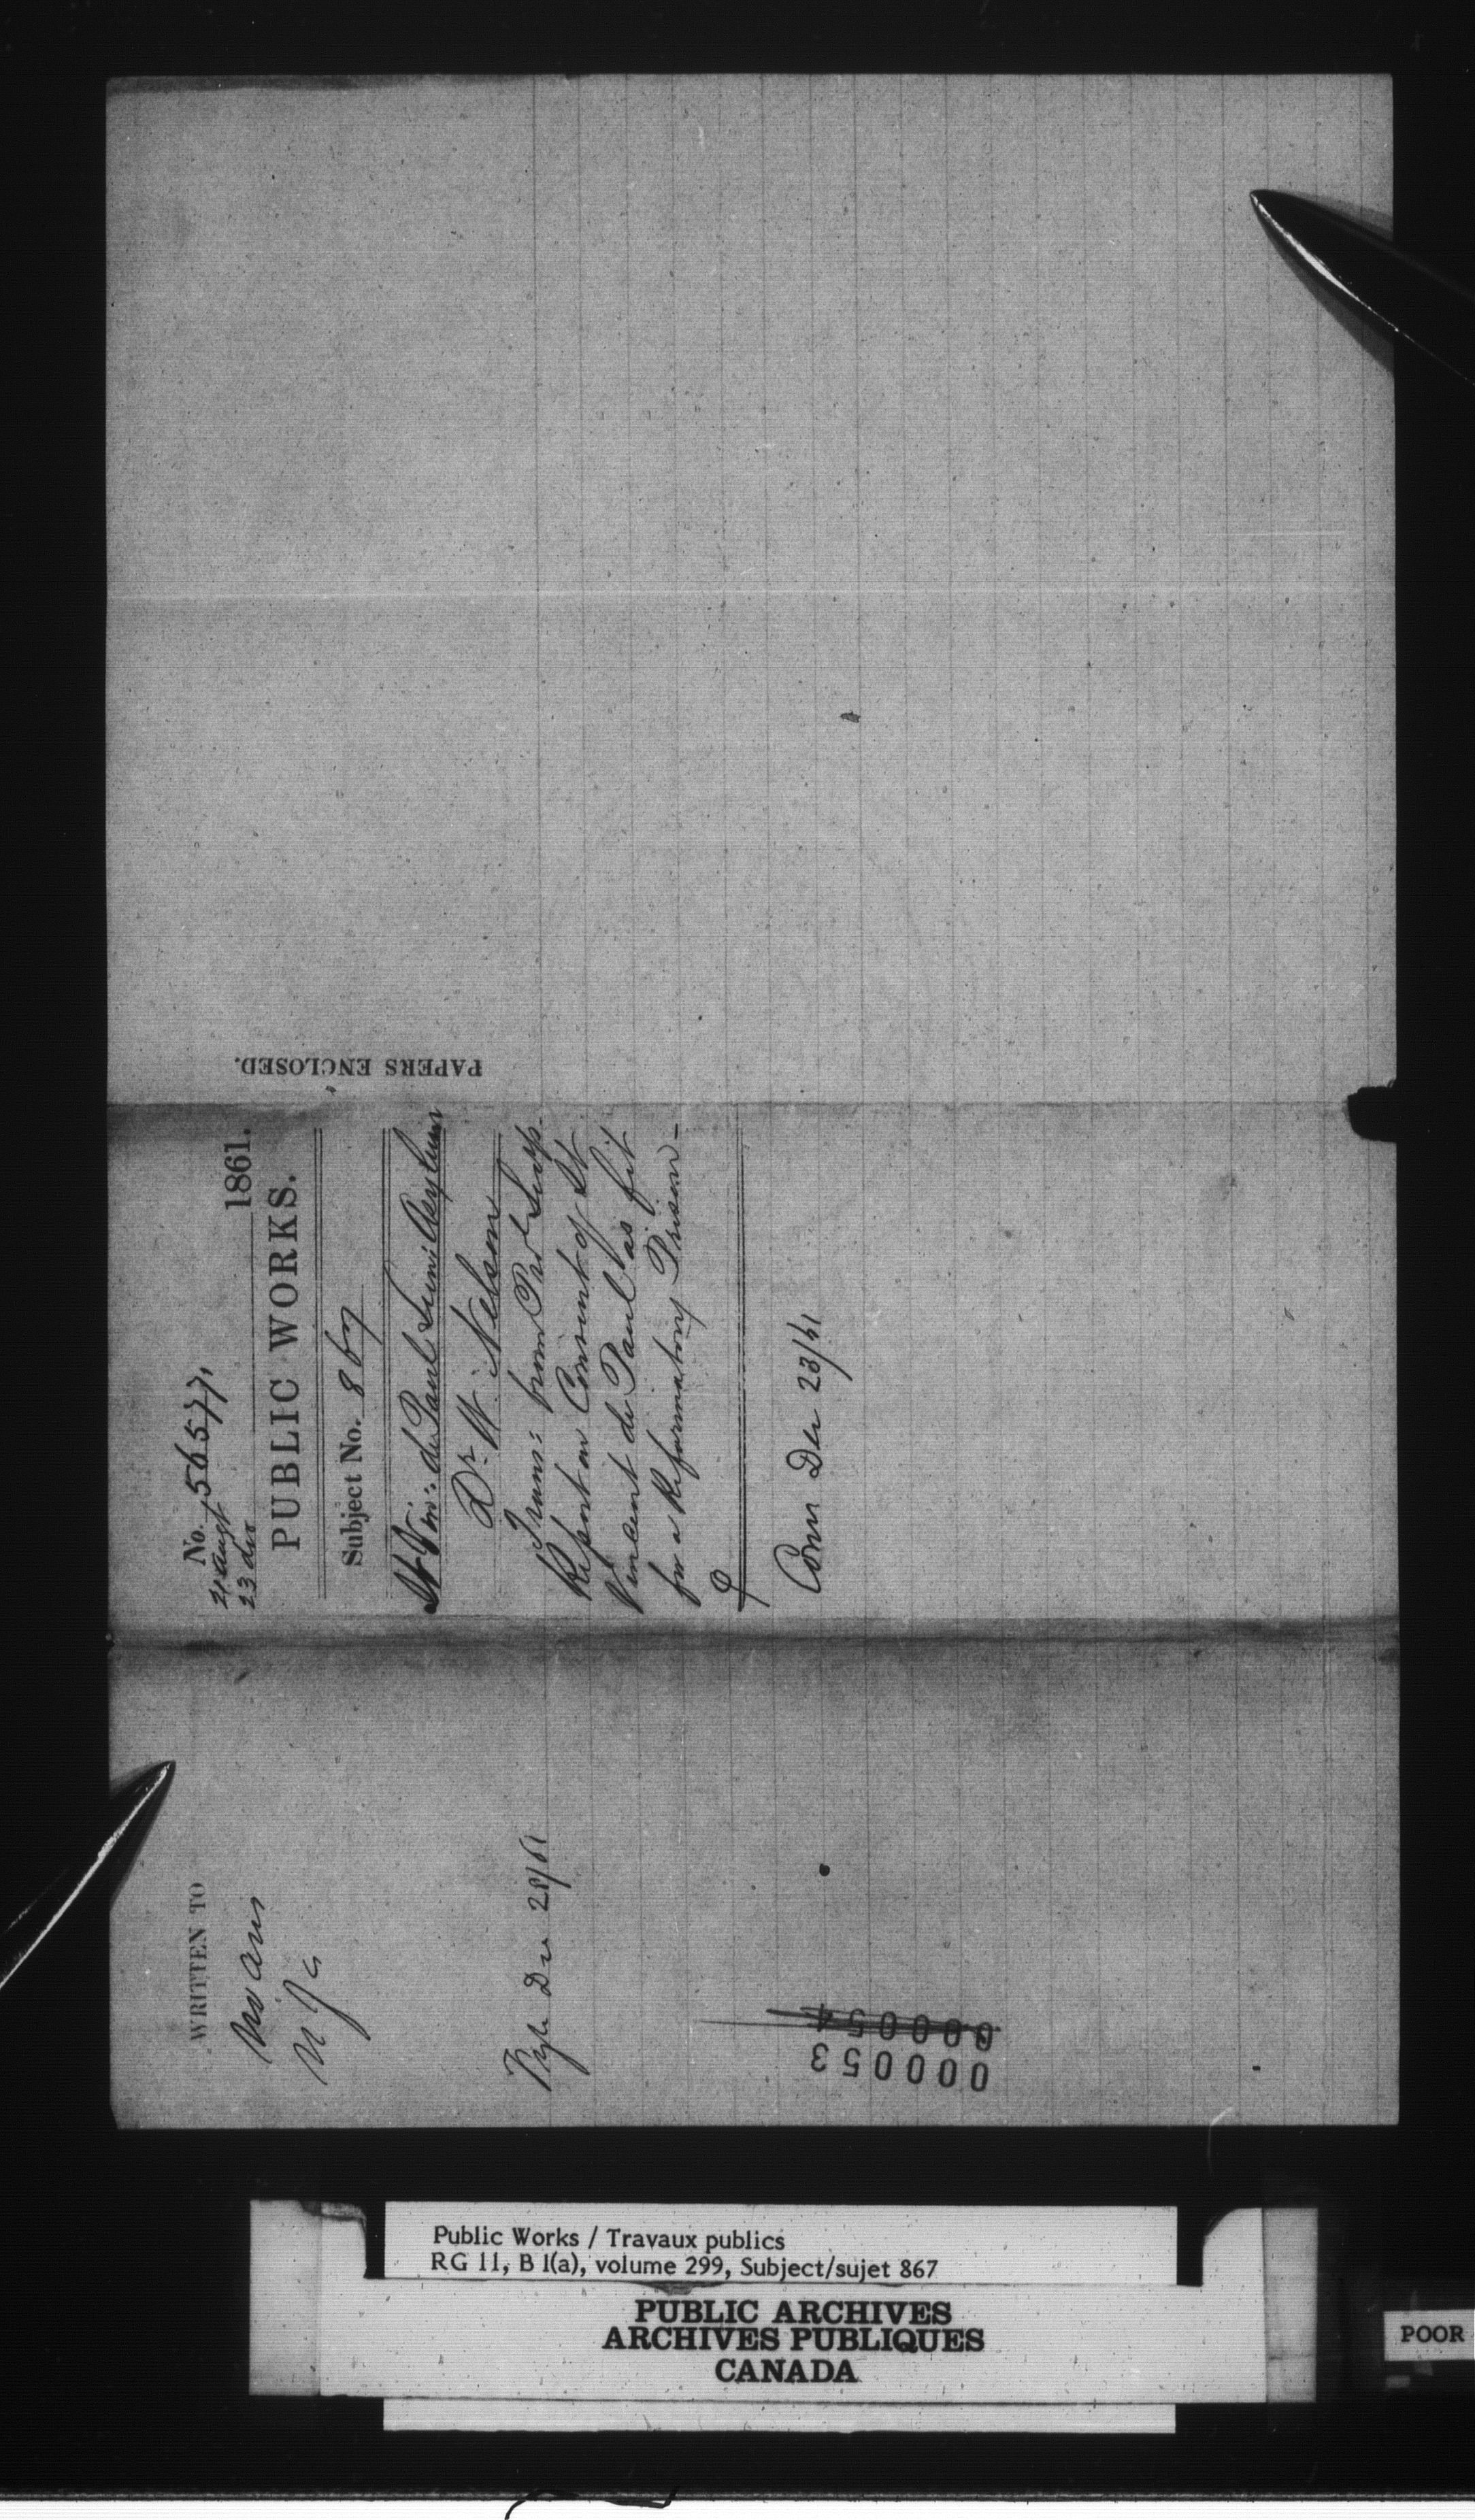 No. 56577,
21 Augt
23 do 1861.
PUBLIC WORKS.
Subject No. 867
St Vin: de Paul Lun: Asylum
Dr. W. Nelson
Trans: from
Report on Convent of St
Vincent de Paul as fit
for a Reformatory Prison—
Com Der 23/61
PAPERS ENCLOSED.
WRITTEN TO
28/61
000054
000053
Public Works / Travaux publics
RG 11, B 1(a), volume 299, Subject/sujet 867
PUBLIC ARCHIVES
ARCHIVES PUBLIQUES
CANADA
POOR